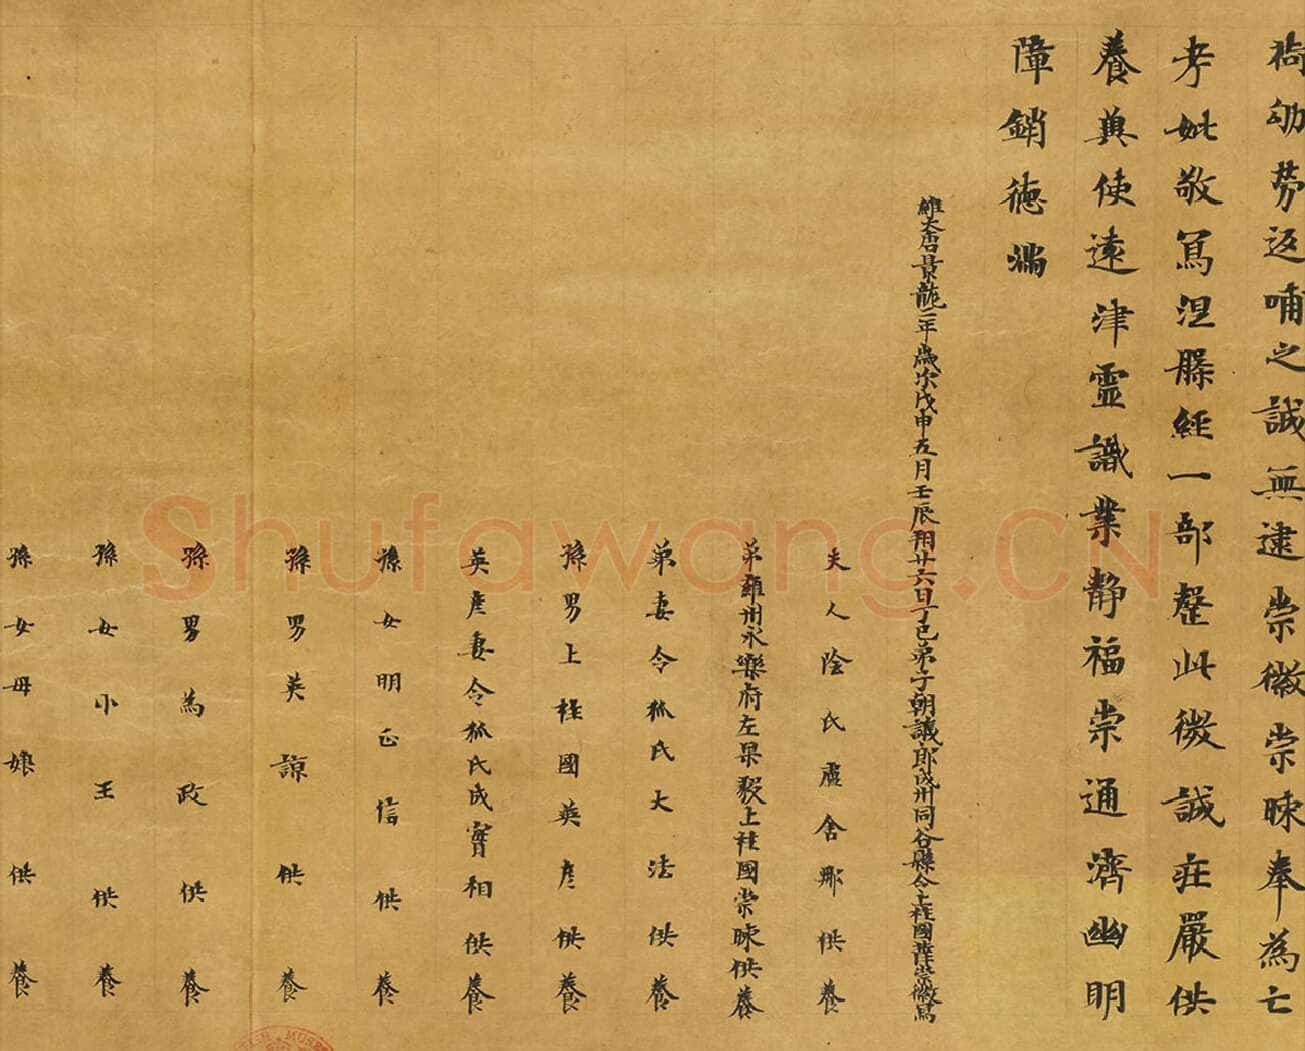 劬勞返哺之誠無逮崇徽崇暕奉為亡
考妣敬寫涅槃經一部罄此微誠莊嚴供
養冀使遠津靈識業静福崇通濟幽明
障銷德滿
維大唐景龍二年歲次戊申五月壬辰朔廿六日丁巳弟子朝議郎成州同谷縣令上柱國薛崇徽寫
夫人陰氏盧舍那供養
弟雍州永樂府左果毅上柱國崇暕供養
弟妻令狐氏大法供養
孫男上柱國英彦供養
英彦妻令狐氏成實相供養
孫女明正信供養
孫男英諒供養
孫男為政供養
孫女小王供養
孫女母娘供養
Shufawang.CN